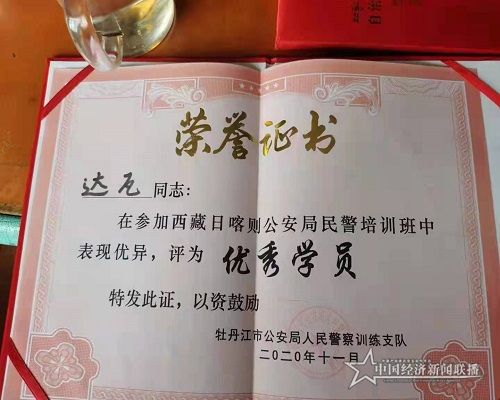 荣誉证书
达瓦同志：
在参加西藏日喀则公安局民警培训班中
表现优异，评为 优秀学员
特发此证，以资鼓励
牡丹江市公安局人民警察训练支队
二〇二〇年十一月
中国经济新闻联播